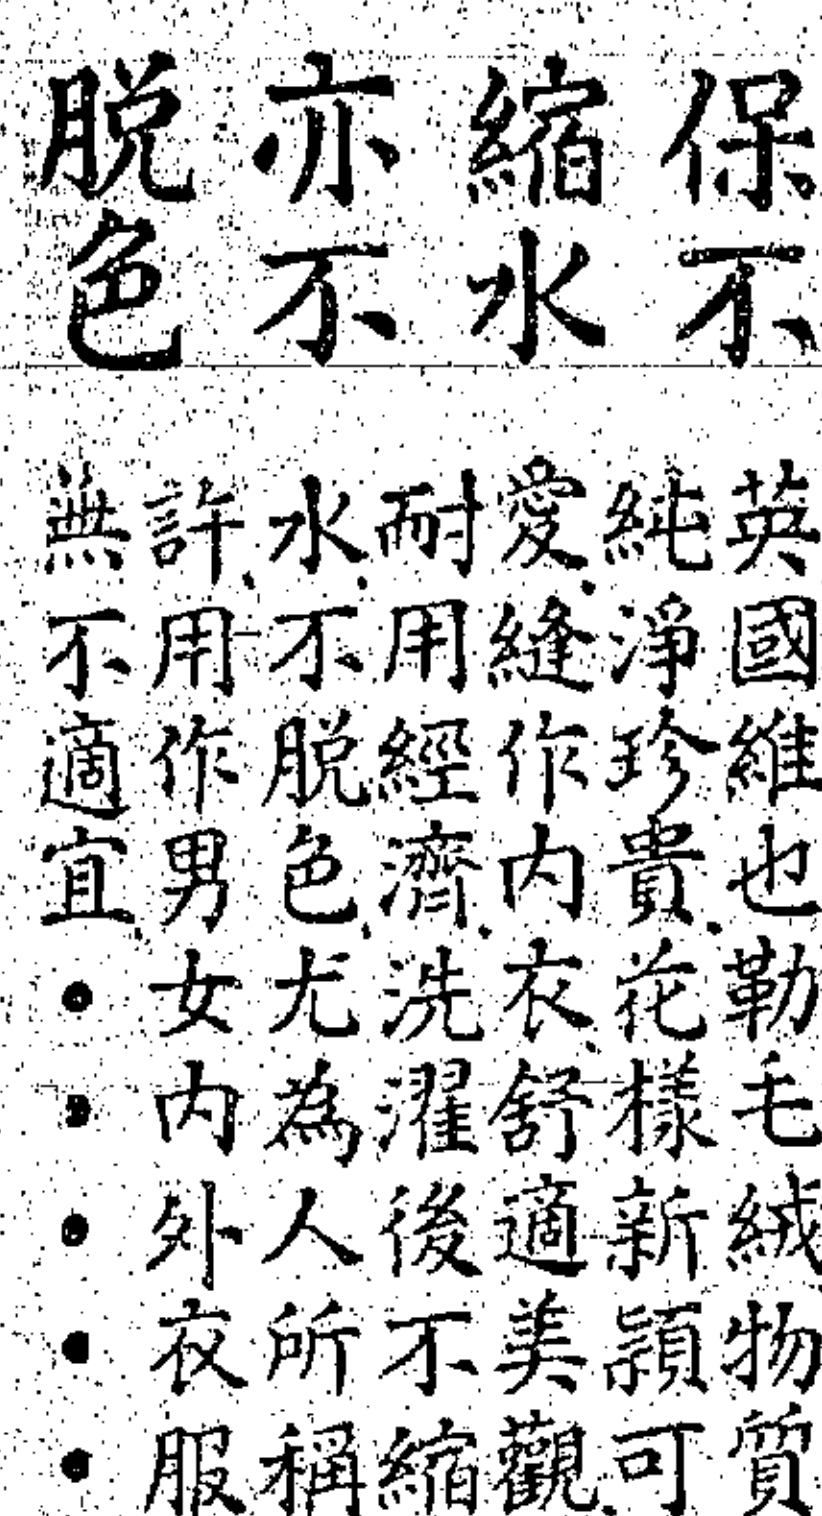 保不
縮水
亦不
脱色
英國維也勒毛絨物質
純淨珍貴、花樣新頴可
愛、縫作内衣、舒適美觀、
耐用經濟、洗濯後不縮
水、不脱色尤為人所稱
許、用作男女内外衣服
無不適宜、